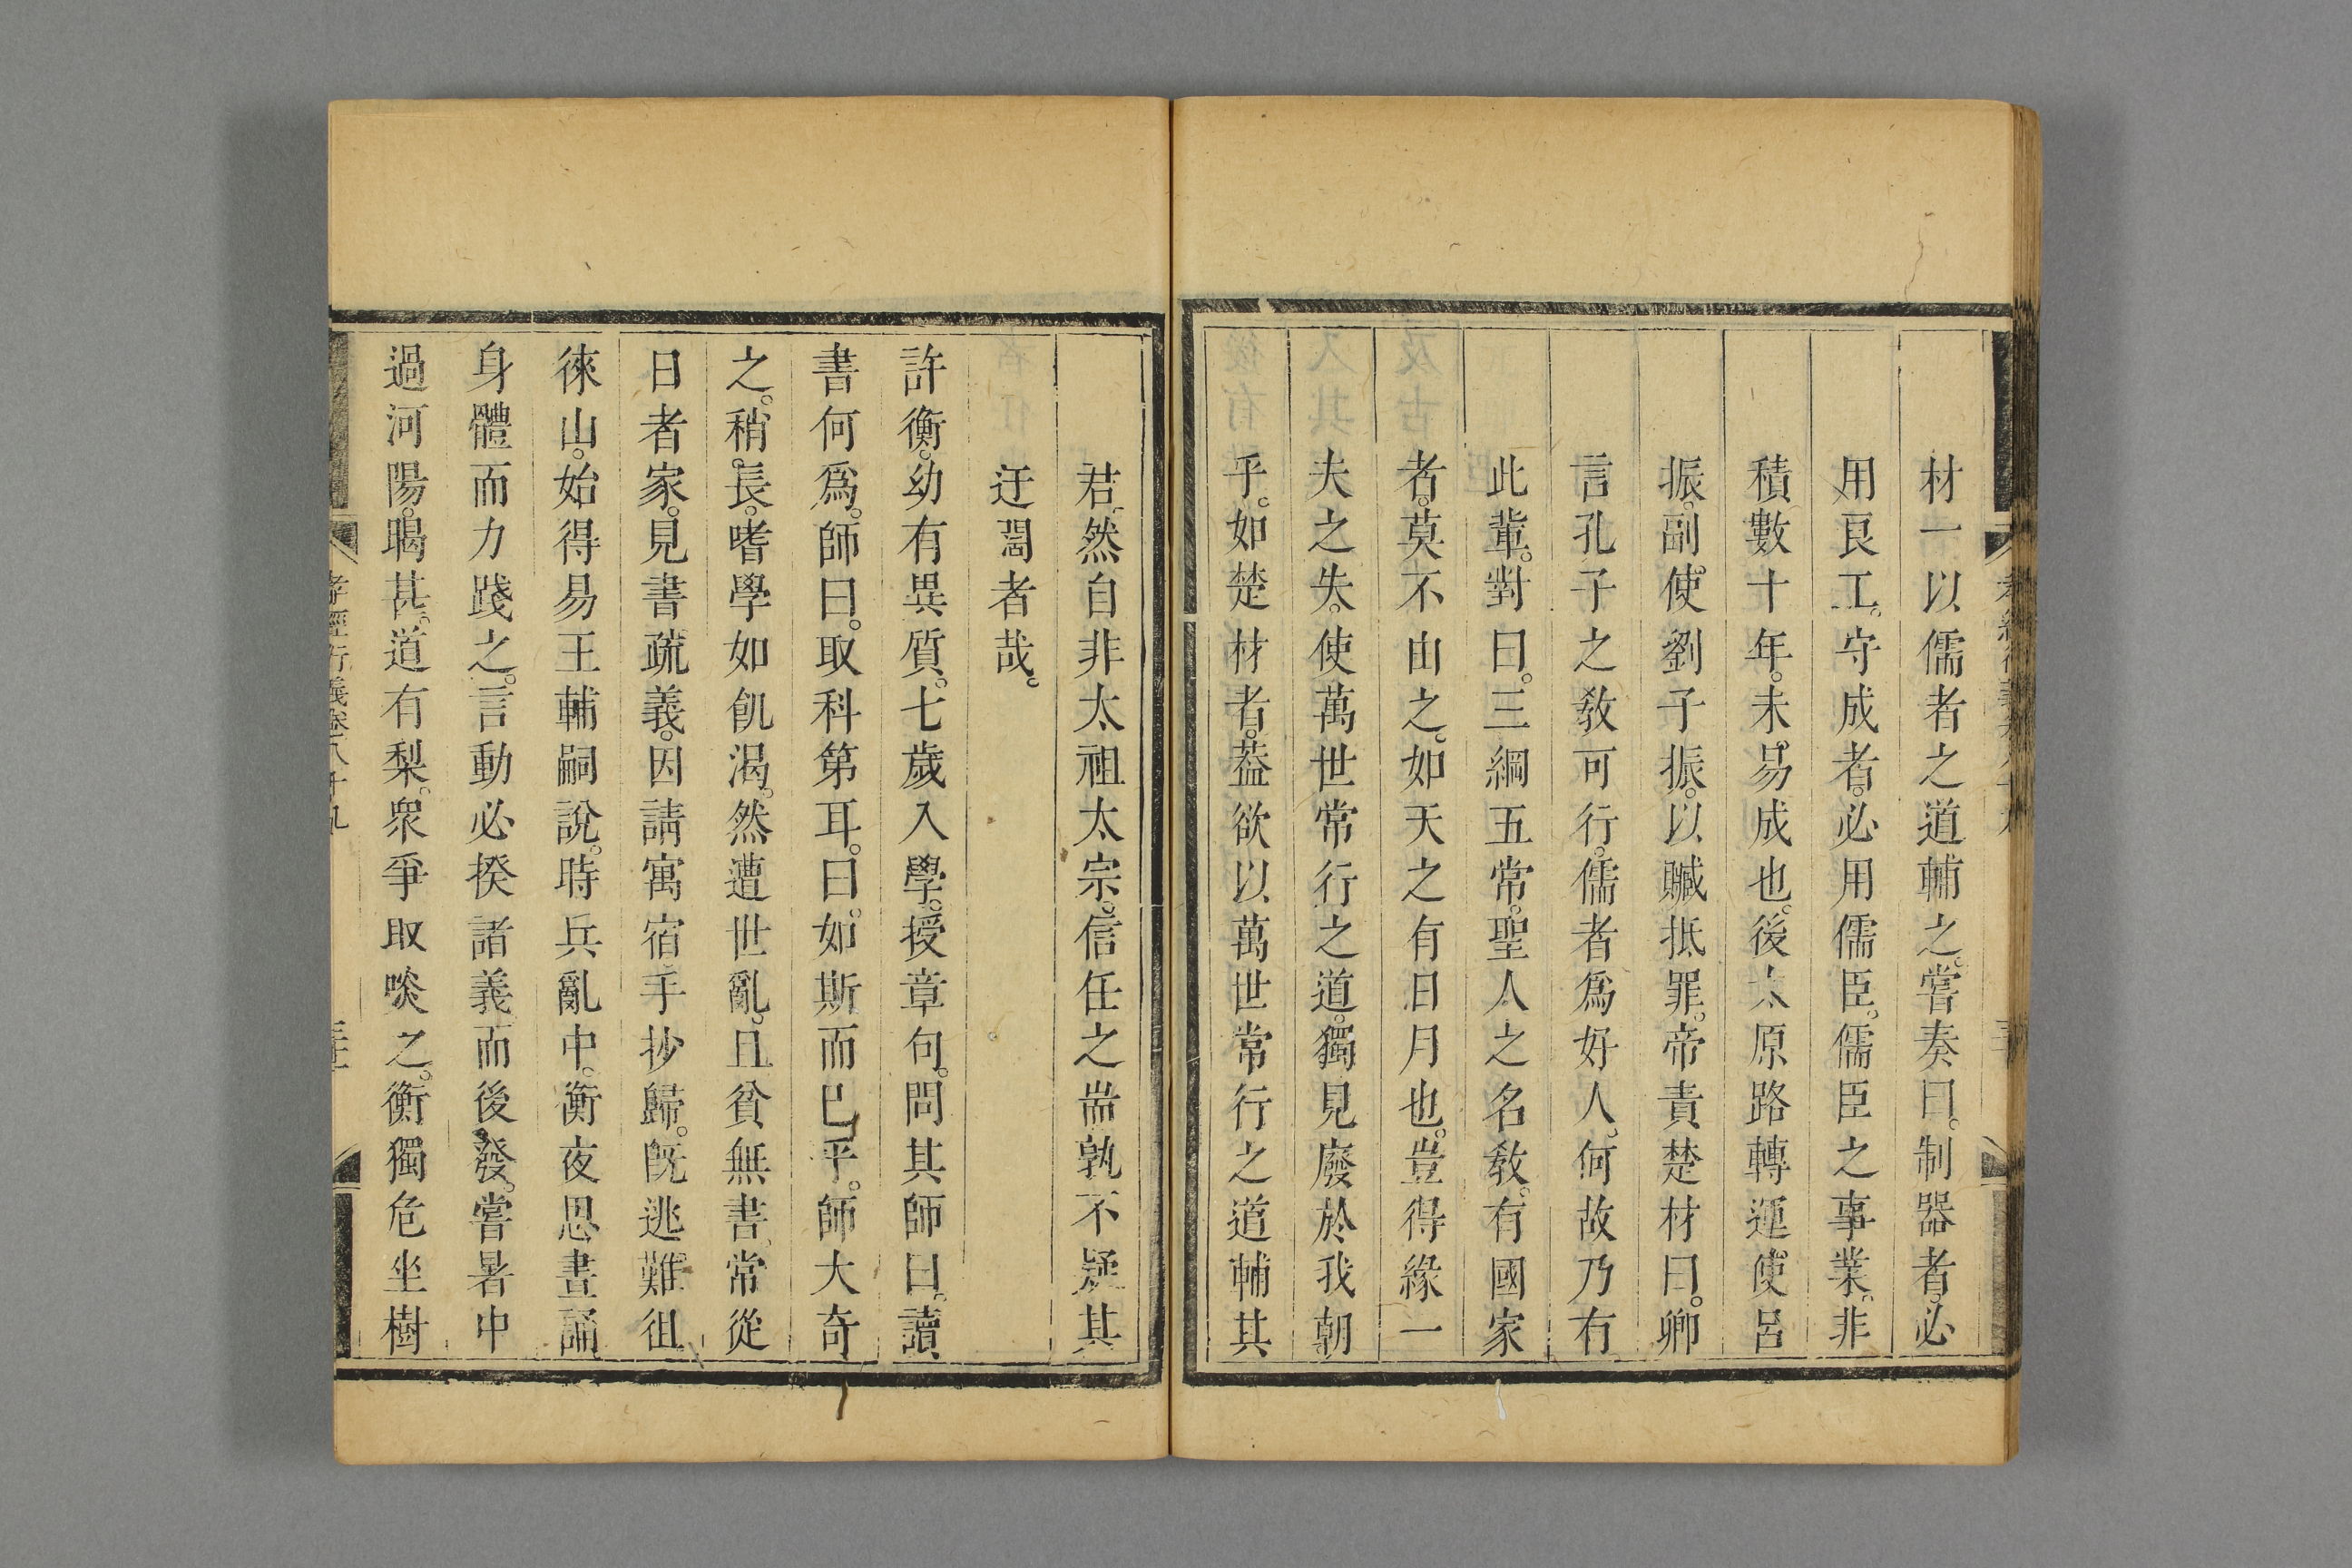 材一以儒者之道輔之。嘗奏曰。制器者。必
用良工。守成者。必用儒臣。儒臣之事業。非
積數十年。未易成也。後太原路轉運使呂
振。副使劉子振。以贓抵罪。帝責楚材曰。卿
言孔子之敎可行。儒者爲好人。何故乃有
此輩。對曰。三綱五常。聖人之名敎。有國家
者。莫不由之。如天之有日月也。豈得緣一
夫之失。使萬世常行之道。獨見廢於我朝
乎。如楚材者。葢欲以萬世常行之道輔其
君。然自非太祖太宗。信任之耑。孰不疑其
迂闊者哉。
許衡。幼有異質。七歲入學。授章句。問其師曰。讀
書何爲。師曰。取科第耳。曰。如斯而已乎。師大奇
之。稍長。嗜學如飢渴。然遭世亂。且貧無書。常從
日者家。見書疏義。因請寓宿手抄歸。旣逃難徂
徠山。始得易王輔嗣說。時兵亂中。衡夜思晝誦
身體而力踐之。言動必揆諸義而後發。嘗暑中
過河陽。暍甚。道有梨。衆爭取啖之。衡獨危坐樹
孝經衍義卷八十九